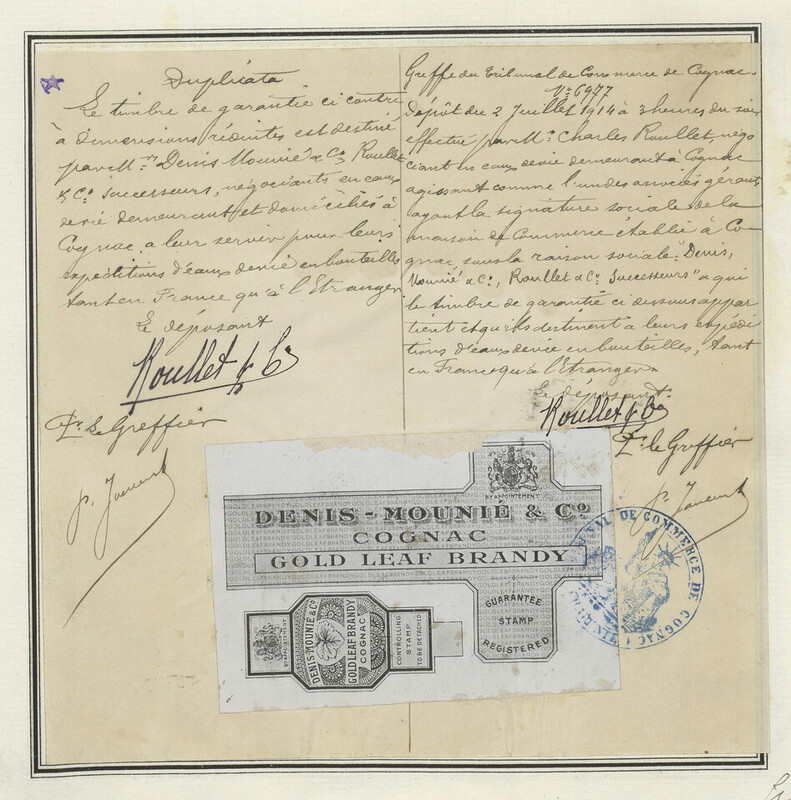 Duplicata
Le timbre de garantie ci contre
à dimensions réduites est destiné
par MM. rs Denis Mounié & Co, Roullet
& Co Successeurs, négociants en eaux
de vie demeurant et domiciliés à
Cognac, a leur servir pour leurs
expéditions d'eaux de vie en bouteilles
tant en France qu'à l'Etranger
Le déposant
Roullet & Co
Pr. le Greffier
Greffe du Tribunal de Commerce de Cognac.
No 6977
Dépôt du 2 Juillet 1914 à 3 heures du soir
effectué par Mr. Charles Roullet, négo
ciant en eaux de vie demeurant à Cognac
agissant comme l'un des associés gérants
ayant la signature sociale de la
maison de Commerce établie à Co-
gnac sous la raison sociale "Denis,
Mounié & Co, Roullet & Co Successeurs" a qui
le timbre de garantie ci dessus appar
tient et qu'ils destinent à leurs expédi
tions d'eaux de vie en bouteilles, tant
en France qu'à l'Etranger.
Le déposant.
Roullet & Co
Pr. le Greffier
BY APPOINTMENT
DENIS-MOUNIÉ & Co
COGNAC
GOLD LEAF BRANDY
GUARANTEE
STAMP
REGISTERED
BY APPOINTMENT
DENIS MOUNIE & Co
GOLD LEAF BRANDY
COGNAC
CONTROLLING
STAMP
TO BE DETACHED
DE COMMERCE DE COGNAC